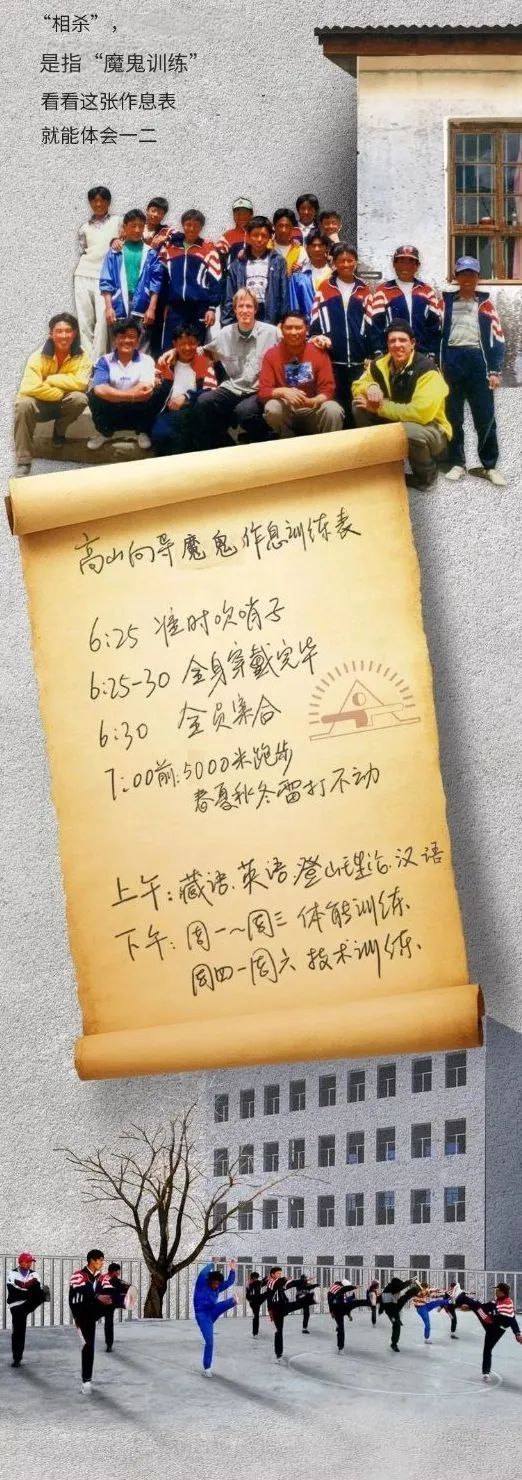 “相杀”，
是指“魔鬼训练”
看看这张作息表
就能体会一二
高山向导魔鬼作息训练表
6:25 准时吹哨子
6:25-30 全身穿戴完毕
6:30 全员集合
7:00前:5000米跑步
春夏秋冬雷打不动
上午:藏语、英语、登山理论、汉语
下午:周一~周三 体能训练、
周四-周六 技术训练、